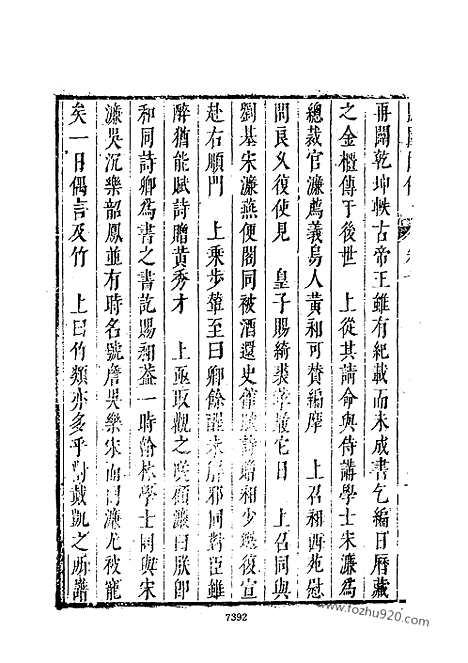 再闢乾坤軼古帝王雖有紀載而未成書乞編日曆藏
之金櫃傳于後世　上從其請命與侍講學士宋濂爲
總裁官濂薦義烏人黃和可贊編摩　上召和西苑慰
問良久復使見　皇子賜綺裘　　它日　上召同與
劉基宋濂燕便閣同被酒還史館　詩贈和少選復宣
赴右順門　上乘步輦至曰卿餘醒未解邪同對臣雖
醉猶能賦詩贈黃秀才　上亟取觀之　顧濂曰朕卽
和同詩卿爲書之書訖賜和蓋一時翰林學士同與宋
濂吳沉樂韶鳳並有時名號詹吳樂宋而同濂尤被寵
矣一日偶言及竹　上曰竹類亦多乎對戴凱之所譜
7392
www.fozhu920.com